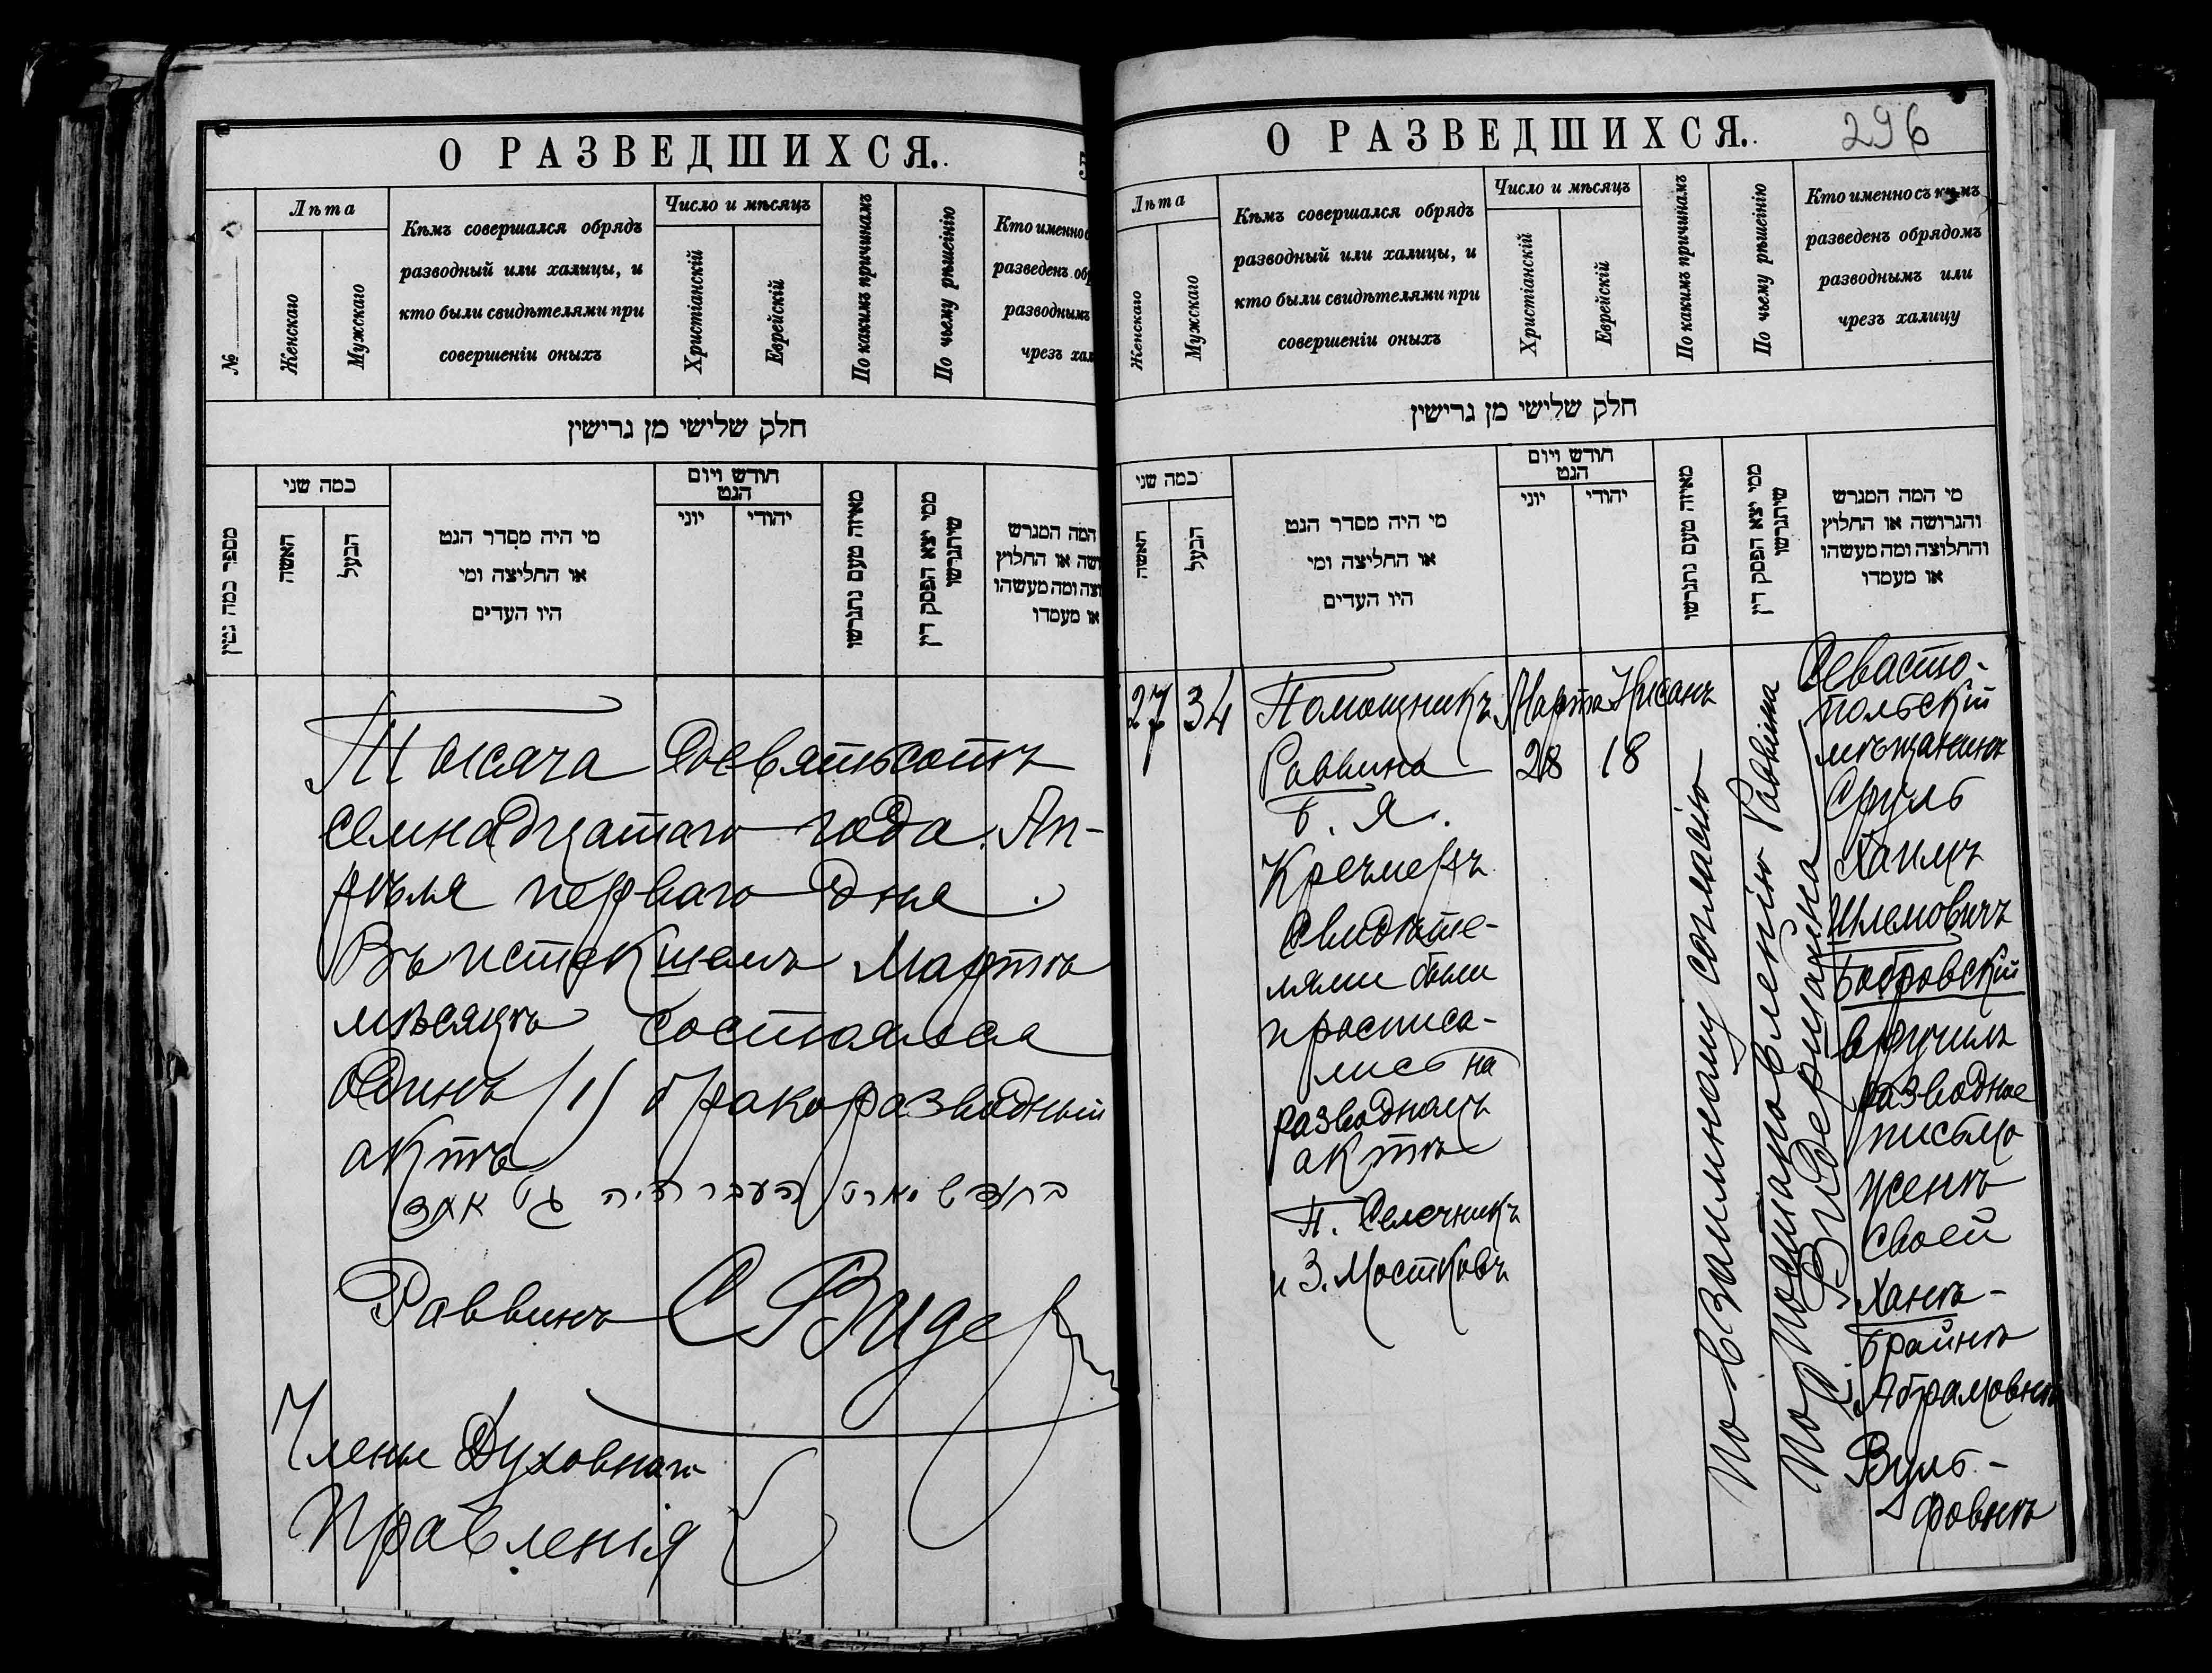 О РАЗВЕДШИХСЯ.
№
Лѣта
Женскаго
Мужскаго
Кѣмъ совершался обрядъ
разводный или халицы, и
кто были свидѣтелями при
совершеніи оныхъ
Число и мѣсяцъ
Христіанскій
Еврейскій
По какимъ причинамъ
По чьему рѣшенію
Кто именно с
разведенъ об
разводнымъ
чрезъ хал
חלק שלישי מן גרישין
מספר כמה גטין
כמה שני
האשה
הבעל
מי היה מסדר הגט
או החליצה ומי
היו העדים
חודש ויום
הגט
יוני
יהודי
מאיזה טעם נתגרשו
ממי יצא הפסק דין
שיתגרשו
המה המגרש
ושה או החלוץ
וצה ומה מעשהו
או מעמדו
Тысяча девятьсотъ
семнадцатаго года. Ап-
рѣля перваго дня.
Въ истекшемъ Мартѣ
мѣсяцѣ состоялся
одинъ /1/ бракоразводный
актъ
בחודש מארט העבר היה גט אחד
Раввинъ С Видер
Члены Духовнаго
Правленія
О РАЗВЕДШИХСЯ.
296
Лѣта
Женскаго
Мужскаго
Кѣмъ совершался обрядъ
разводный или халицы, и
кто были свидѣтелями при
совершеніи оныхъ
Число и мѣсяцъ
Христіанскій
Еврейскій
По какимъ причинамъ
По чьему рѣшенію
Кто именно съ кѣмъ
разведенъ обрядомъ
разводнымъ или
чрезъ халицу
חלק שלישי מן גרישין
כמה שני
האשה
הבעל
מי היה מסדר הגט
או החליצה ומי
היו העדים
חודש ויום
הגט
יוני
יהודי
מאיזה טעם נתגרשו
ממי יצא הפסק דין
שיתגרשו
מי המה המגרש
והגרושה או החלוץ
והחלוצה ומה מעשהו
או מעמדו
27
34
Помощникъ
Раввина
Б. Я.
Кречмеръ
Свидѣте-
лями были
и росписа-
лись на
разводномъ
актѣ
П. Селечникъ
и З. Мостковъ
Марта
28
Нисанъ
18
По взаимному согласію
По постановленію Раввина
С. Видермана
Севасто-
польскій
мѣщанинъ
Сруль
Хаимъ
Шлемовичъ
Бобровскій
вручилъ
разводное
письмо
женѣ
своей
Ханѣ-
Брайнѣ
Абрамовнѣ
Вуль-
фовнѣ